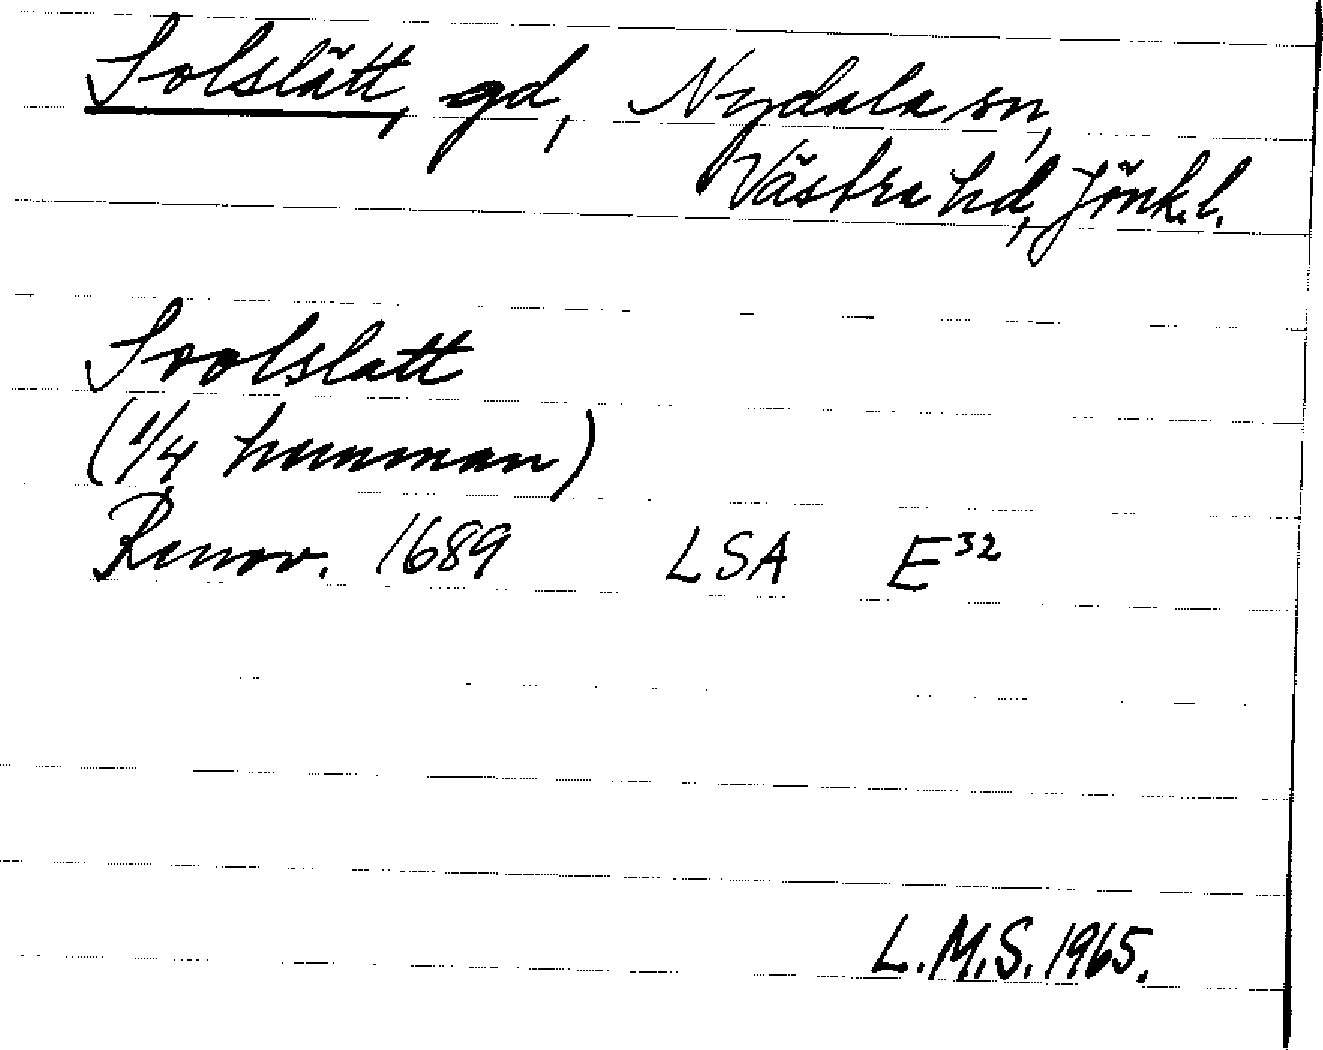 Solslätt, gd, Nydala sn,
Västra hd, Jönk. l.
Soolslatt
(1/4 humman)
Renov. 1689 LSA E³²
L.M.S. 1965.